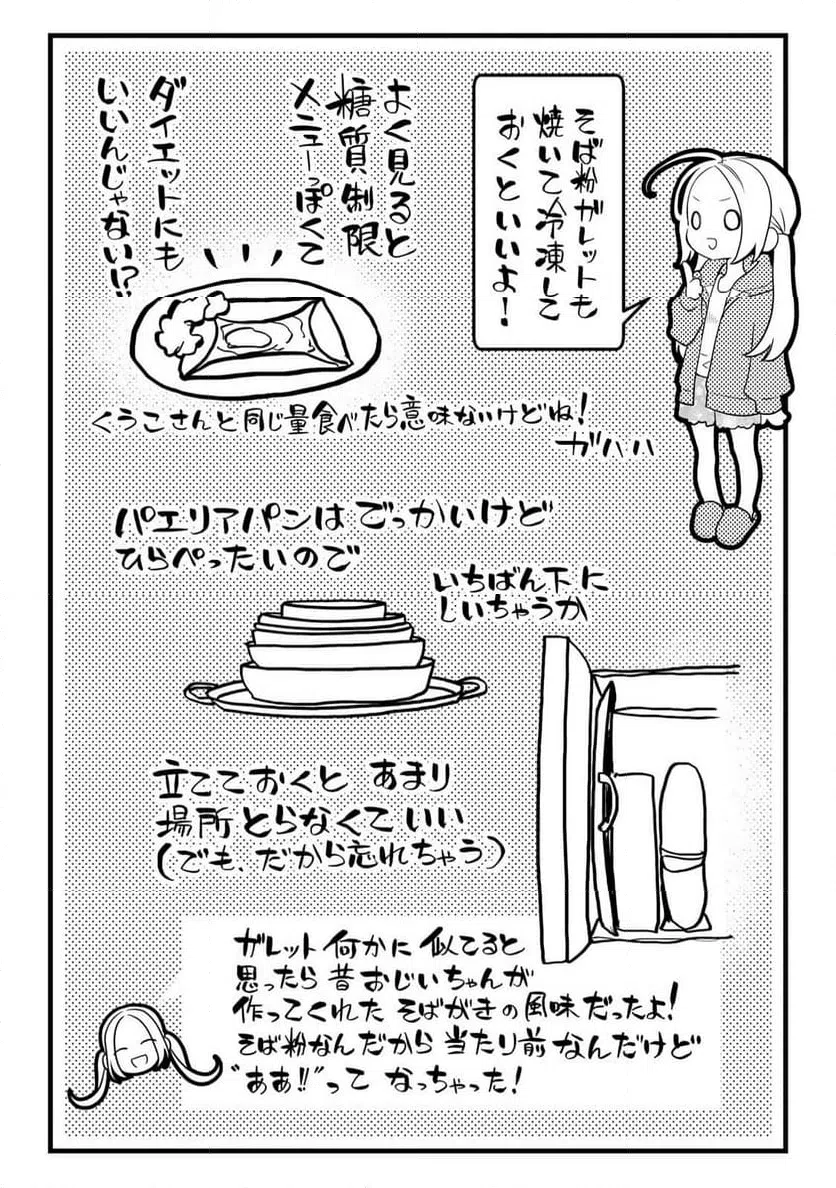 そば粉ガレットも
焼いて冷凍して
おくといいよ！
よく見ると
糖質制限
メニューっぽくて
ダイエットにも
いいんじゃない!?
くうこさんと同じ量食べたら意味ないけどね！
ガハハ
パエリアパンはでっかいけど
ひらぺったいので
いちばん下に
しいちゃうか
立てておくと あまり
場所とらなくていい
（でも、だから忘れちゃう）
ガレット何かに似てると
思ったら昔おじいちゃんが
作ってくれたそばがきの風味だったよ！
そば粉なんだから当たり前なんだけど
“ああ!!”って なっちゃった！